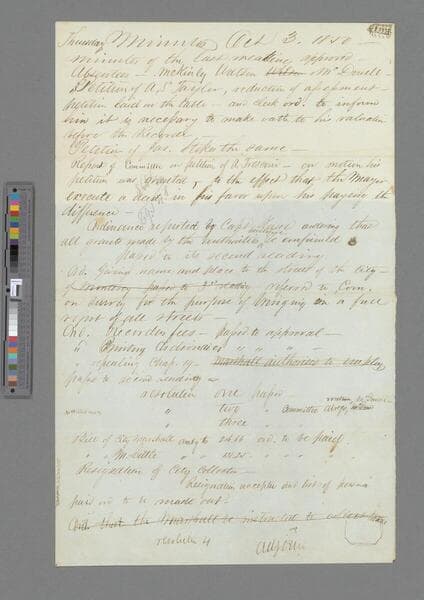 Thursday Minutes Oct 3. 1850 —
minutes of the last meeting approved
Absentees — McKinly Watson Wilson Mc Dowell
Petition of A S Taylor, reduction of assessment
petition laid on the table — and clerk ord. to inform
him it is necessary to make oath to his valuation
before the Recorder
Petition of Jas. Stokes the same —
Report of Committee on petition of A — on motion his
petition was granted, to the effect that the Mayor
execute a deed in his favor upon his paying the
difference —
Ordinance reported by Capt. ordering that
all grants made by the authorities be confirmed
passed to its second reading
Ord. Giving name and place to the streets of the City —
passed to 2d reading referred to Com.
on survey for the purpose of bringing in a full
report of all streets —
Ord. Recorders fees — passed to approval —
" Printing Ordinances " " " "
" repealing Chap. of — Marshall authorized to employ
passed to second reading =
resolution one passed
" two " Committee Abrego,
" three "
Bill of City Marshall amtg to 24.56 ord. to be paid
" " McKittle " 17.25 " " "
Resignation of City Collector —
Resignation accepted and list of persons
paid ord to be made out.
Ord that the Marshall be instructed to
resolution 4
adjourn